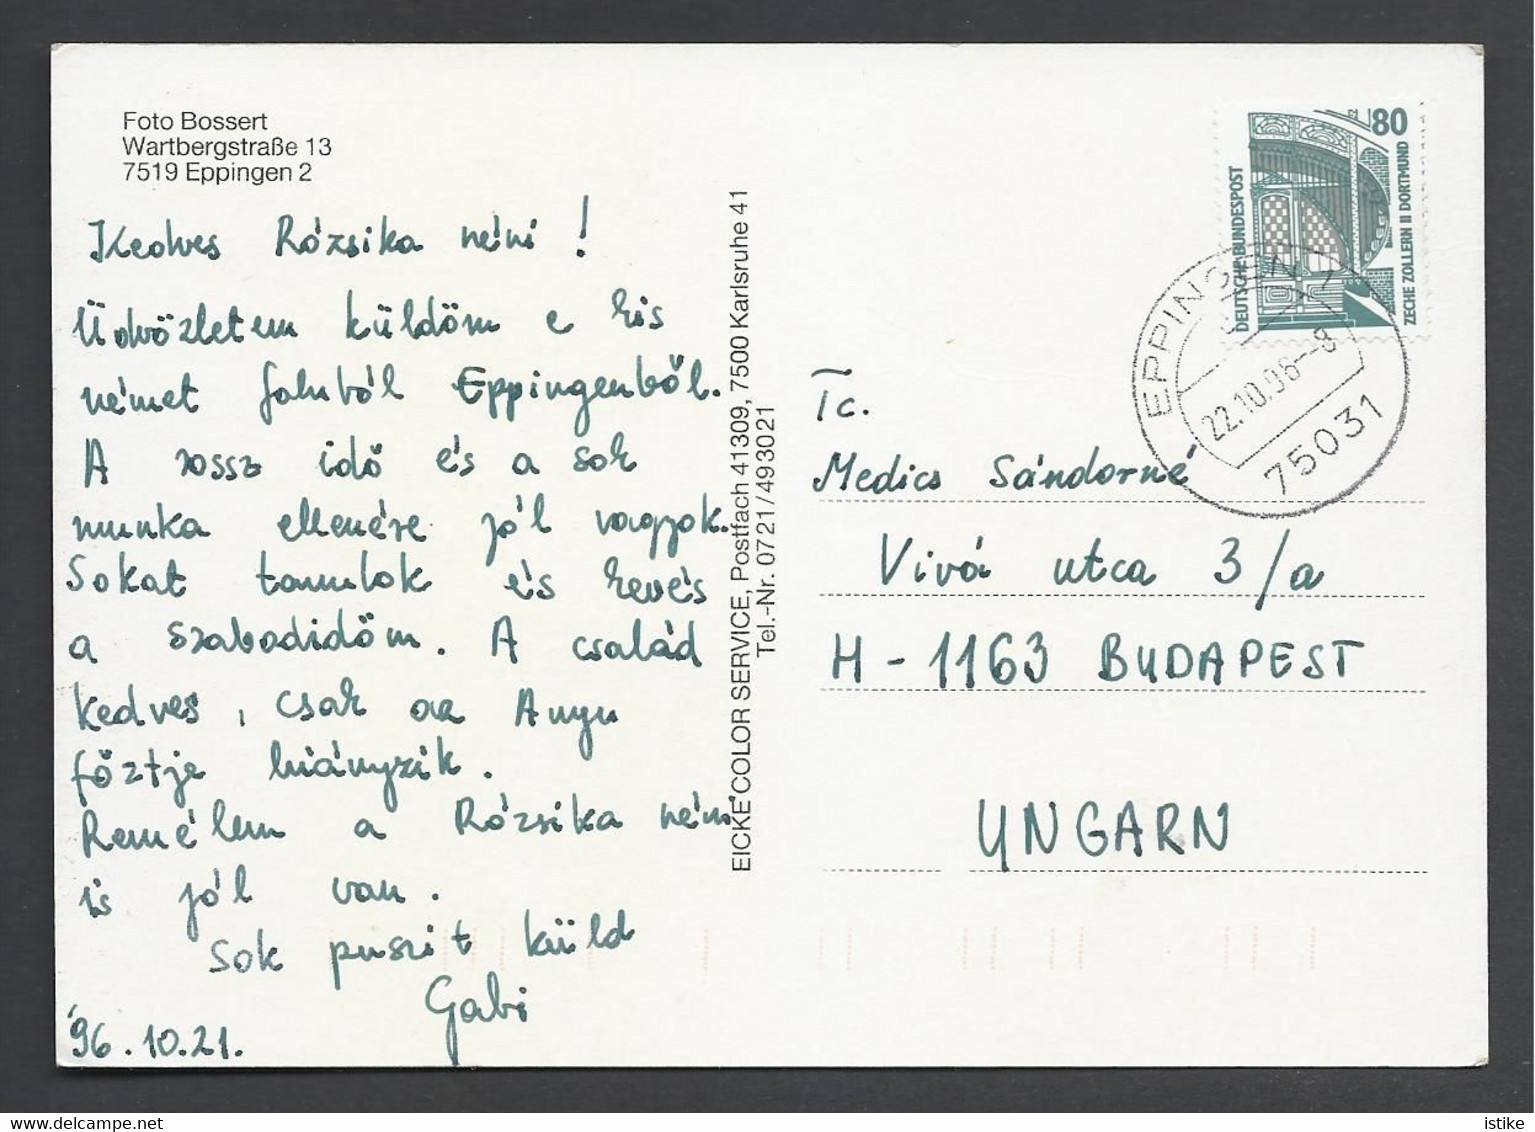 Foto Bossert
Wartbergstraße 13
7519 Eppingen 2
Kedves Rózsika néni !
Üdvözletem küldöm e kis
német faluból Eppingenből.
A rossz idő és a sok
munka ellenére jól vagyok.
Sokat tanulok és kevés
a szabadidőm. A család
kedves, csak az Anyu
főztje hiányzik.
Remélem a Rózsika néni
is jól van.
Sok puszit küld
Gabi
'96.10.21.
EICKE COLOR SERVICE, Postfach 41309, 7500 Karlsruhe 41
Tel.-Nr. 0721/493021
80
DEUTSCHE BUNDESPOST
ZECHE ZOLLERN II DORTMUND
EPPINGEN 1
22.10.96--8
75031
Tc.
Medics Sándorné
Vivá utca 3/a
H-1163 BUDAPEST
UNGARN
delcampe.net
istike